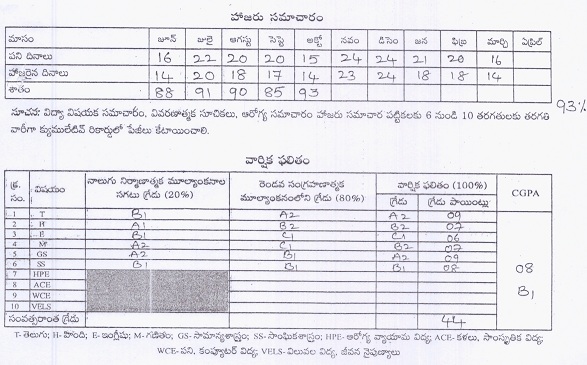 హాజరు సమాచారం
మాసం జూన్ జులై ఆగస్ట్ సెప్టె అక్టో నవం డిసెం జన ఫిబ్ర మార్చి ఏప్రిల్
పని దినాలు 16 22 20 20 15 24 24 21 20 16
హాజరైన దినాలు 14 20 18 17 14 23 24 18 18 14
శాతం 88 91 90 85 93
93%
సూచన: విద్యా విషయక సమాచారం, వివరణాత్మక సూచికలు, ఆరోగ్య సమాచారం హాజరు సమాచార పట్టికలకు 6 నుండి 10 తరగతులకు తరగతి
వారీగా క్యుములేటివ్ రికార్డులో పేజీలు కేటాయించాలి.
వార్షిక ఫలితం
క్ర. సం. విషయం నాలుగు నిర్మాణాత్మక మూల్యాంకనాల సగటు గ్రేడు (20%) రెండవ సంగ్రహణాత్మక మూల్యాంకనంలోని గ్రేడు (80%) వార్షిక ఫలితం (100%) గ్రేడు గ్రేడు పాయింట్లు CGPA
1 T B1 A2 A2 09
2 H A1 B2 B2 07
3 E B1 C1 C1 06
4 M A2 C1 B2 07
5 GS A2 B1 A2 09
6 SS B1 B1 B1 08
7 HPE
08
8 ACE
9 WCE
B1
10 VELS
సంవత్సరాంత గ్రేడు 44
T- తెలుగు; H- హింది; E- ఇంగ్లీషు; M- గణితం; GS- సామాన్యశాస్త్రం; SS- సాంఘికశాస్త్రం; HPE- ఆరోగ్య వ్యాయామ విద్య; ACE- కళలు, సాంస్కృతిక విద్య;
WCE- పని, కంప్యూటర్ విద్య; VELS- విలువల విద్య, జీవన నైపుణ్యాలు